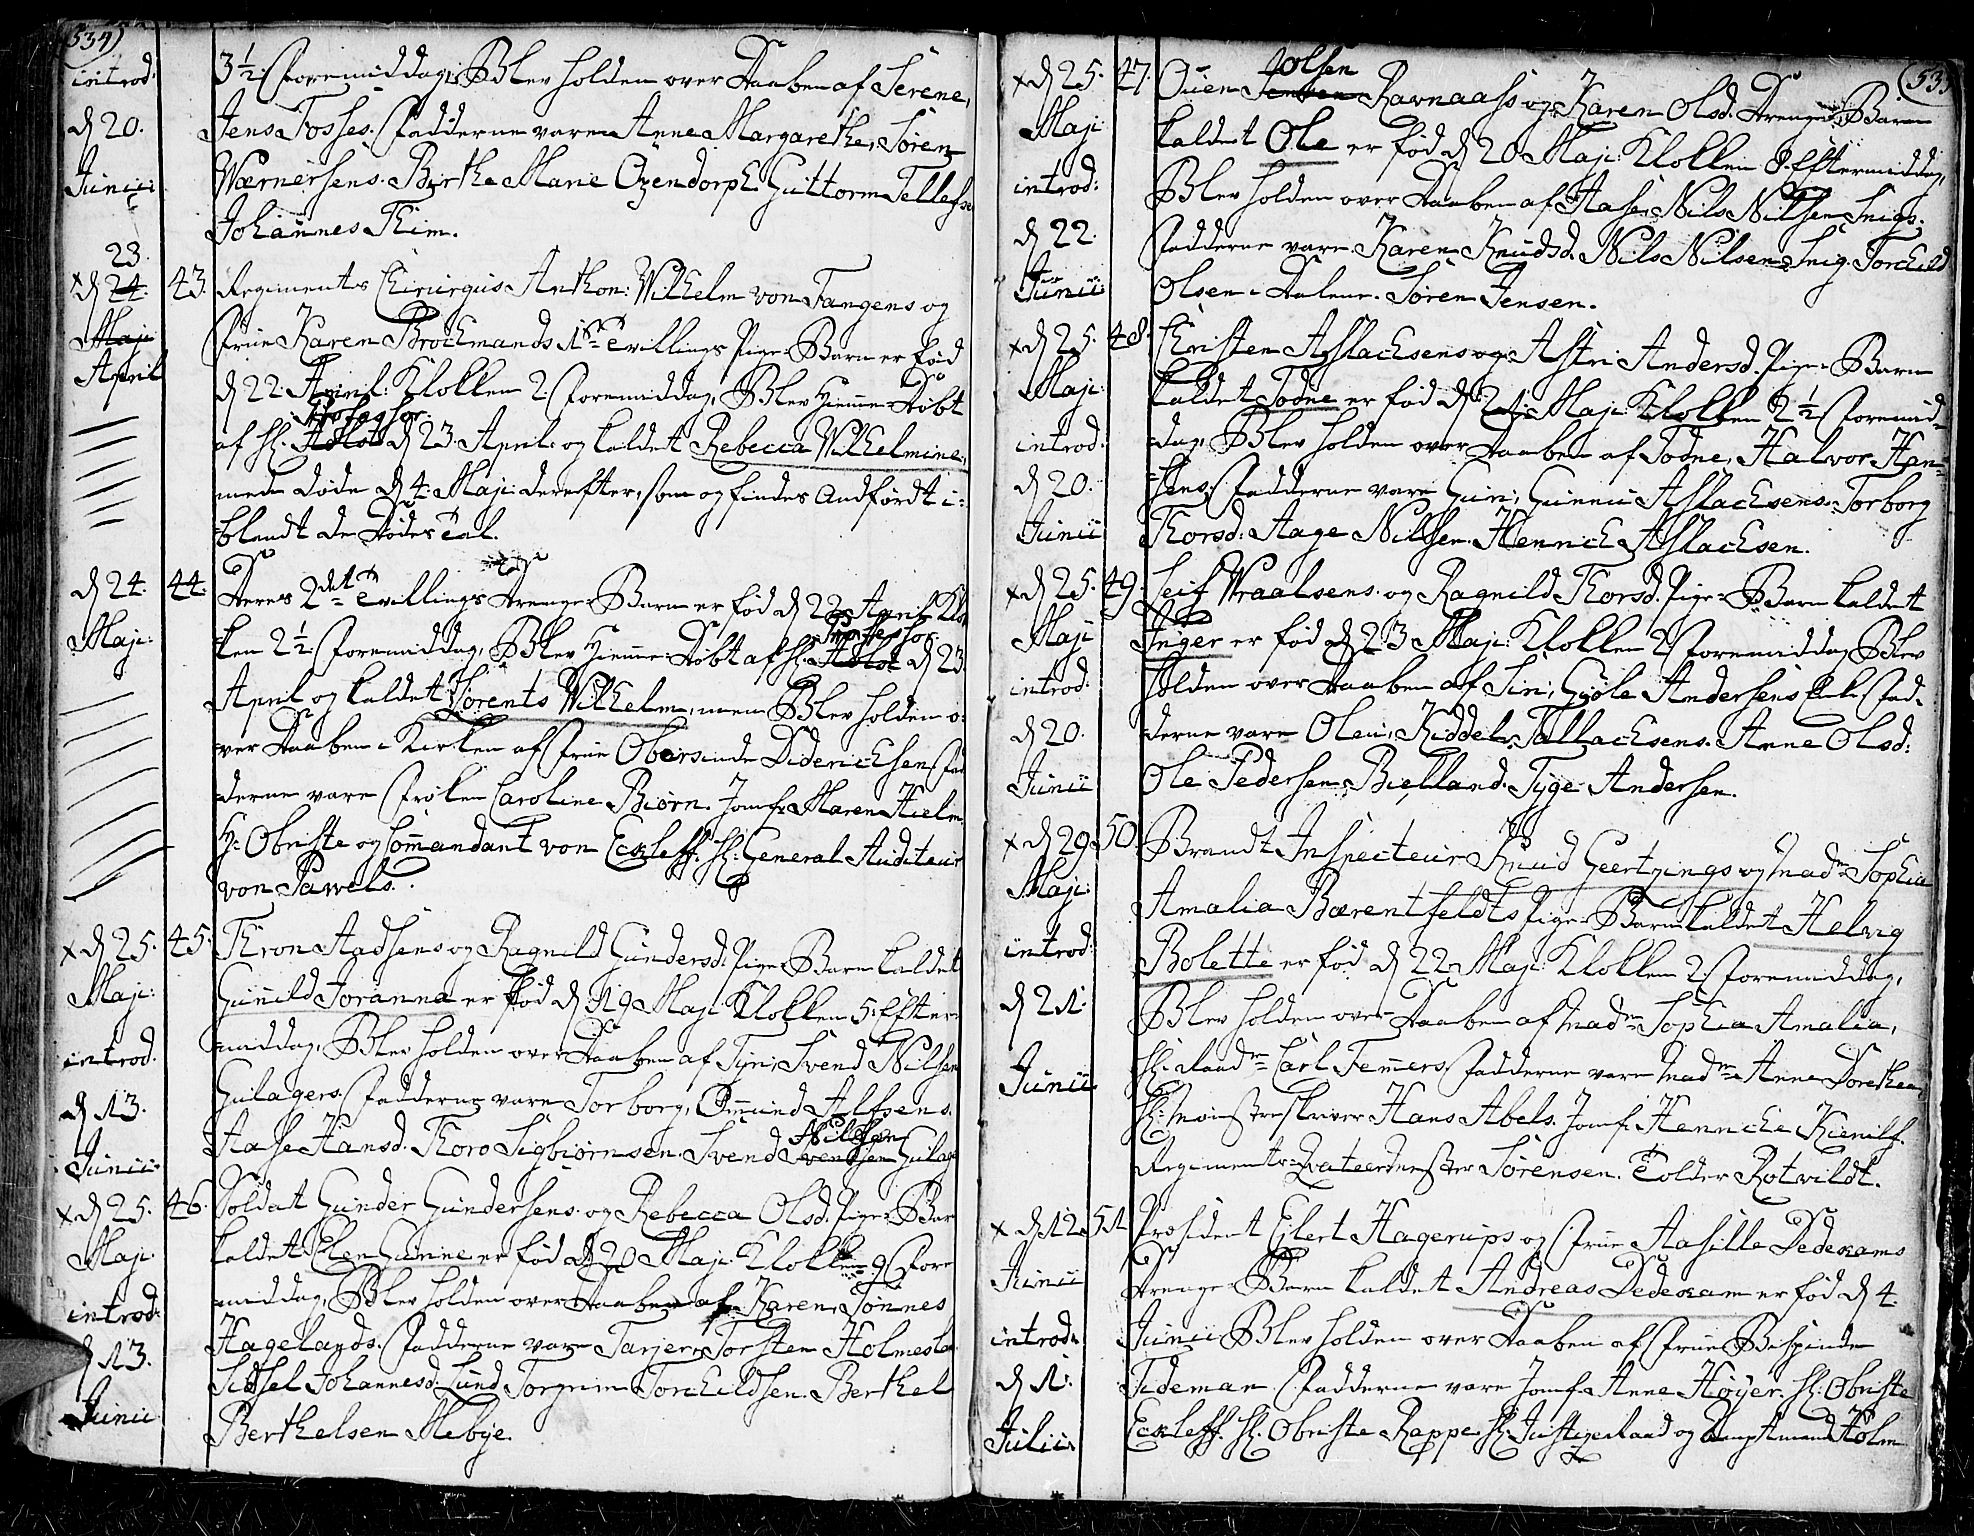 534)
introd:
d 20.
Junii:
3½ Formiddag, Blev holden over Daaben af Serene,
Jens Tosses. Fadderne vare Anne Margarethe, Sören
Wærnersens. Birthe Marie Ozendorph. Guttorm Tellefsen
Johannes Thim.
23.
x d 24. 43.
Maji
April
Regiments Chirurgus Anthon: Wilhelm von Fangens og
Frue Karen Brochmands 1ste Tvillings Pige-Barn er fød
d 22. April: Klokken 2. Formiddag, Blev Hjemme-Døbt
Professor:
af Hr. d 23. April: og kaldet Rebecca Wilhelmine,
men døde d 4. Maji derefter, som og findes Andført i-
blandt de Dødes Tal.
d 24. 44.
Maji:
Deres 2det Tvillings Drenge-Barn er fød d 22. April Klok-
ken 2½ Formiddag, Blev Hjemme-Døbt af Hr. Professor: d 23
April og kaldet Lorents Wilhelm, men Blev holden o-
ver Daaben i Kirken af Frue Obersinde Diderichsen Fad-
derne vare Frøken Caroline Biørn. Jomf: Maren Hielm.
Hr. Obriste og Commandant von Eckleff. Hr: General Auditeur
von Pawels.
x d 25. 45.
Maji:
introd:
d 13.
Junii:
Thron Aadsens og Ragnild Gundersd. Pige-Barn kaldet
Gunild Joranna er fød d 19 Maji Klokken 5. Efter-
middag, Blev holden over Daaben af Siri, Svend Nilsen
Gulagers. Fadderne vare Torborg, Omund Alfsens.
Aase Hansd. Thoro Sigbiørnsen. Svend Svendsen Nilsen Gulag
x d 25. 46.
Maji
introd:
d 13.
Junii
Soldat Gunder Gundersens og Rebecca Olsd. Pige-Bar
kaldet Elen Gurine er fød d 20 Maji: Klokken 9 For-
middag, Blev holden over Daaben af Karen, Tönnes
Hagelands. Fadderne vare Tarjer, Torsten Holmes
Sidsel Johannesd. Lund. Torgrim Torchildsen. Berthel
Berthelsen Mebye.
(535
x d 25. 47.
Maji
introd:
d 22.
Junii:
Olsen
Ouen Ravnaass og Karen Olsd. Drenge-Barn
kaldet Ole er fød d 20 Maji: Klokken 8. Eftermiddag,
Blev holden over Daaben af Aase, Nils Nilsen Snigs.
Fadderne vare Karen Knudsd. Nils Nilsen Snig. Torchild
Olsen Dalene. Sören Jensen.
x d 25. 48.
Maji:
introd:
d 20.
Junii
Christen Asslachsens og Astri Andersd. Pige-Barn
kaldet Todne er fød d Maji: Klokken 2½ Formid-
dag, Blev holden over Daaben af Todne, Halvor Han-
sens. Fadderne vare Guri, Gunnu Asslachsens. Torborg
Thorsd: Aage Nilsen. Henrich Asslachsen.
x d 25. 49.
Maji
introd:
d 20.
Junii
Leif Wraalsens. og Ragnild Thorsd. Pige-Barn kaldet
Inger er fød d 23 Maji: Klokken 2 Formiddag Blev
holden over Daaben af Siri, Gjöle Andersens Enke. Fad-
derne vare Oleu, Kiddel Tallachsens. Anne Olsd:
Ole Pedersen Bielland. Tyge Andersen.
x d 29. 50.
Maji:
introd:
d 21.
Junii
Brandt Inspecteur Knud Geertzings og Madme Sophia
Amalia Bærentfeldts Pige-Barn kaldet Helvig
Bolette er fød d 22 Maji: Klokken 2. Formiddag,
Blev holden over Daaben af Madme Sophia Amalia,
Hr. Raadm Carl Femmers, Fadderne vare Madme Anne Dorethea,
Hr: Mönsterskriver Hans Abels. Jomf: Henriche Kienilf.
Regiments-Qvateermester Sörensen. Tolder Rotvildt.
x d 12. 51
Junii
introd:
d 1.
Julii:
President Eilert Hagerups og Frue Aasille Dedekams
Drenge-Barn kaldet Andreas Dedekam er fød d 4.
Junii Blev holden over Daaben af Frue Bispinde
Tideman. Fadderne vare Jomf: Anne Høyer. Hr. Obriste
Eckleff. Hr. Obriste Rappe. Hr. Justizraad og Amptmand Holm